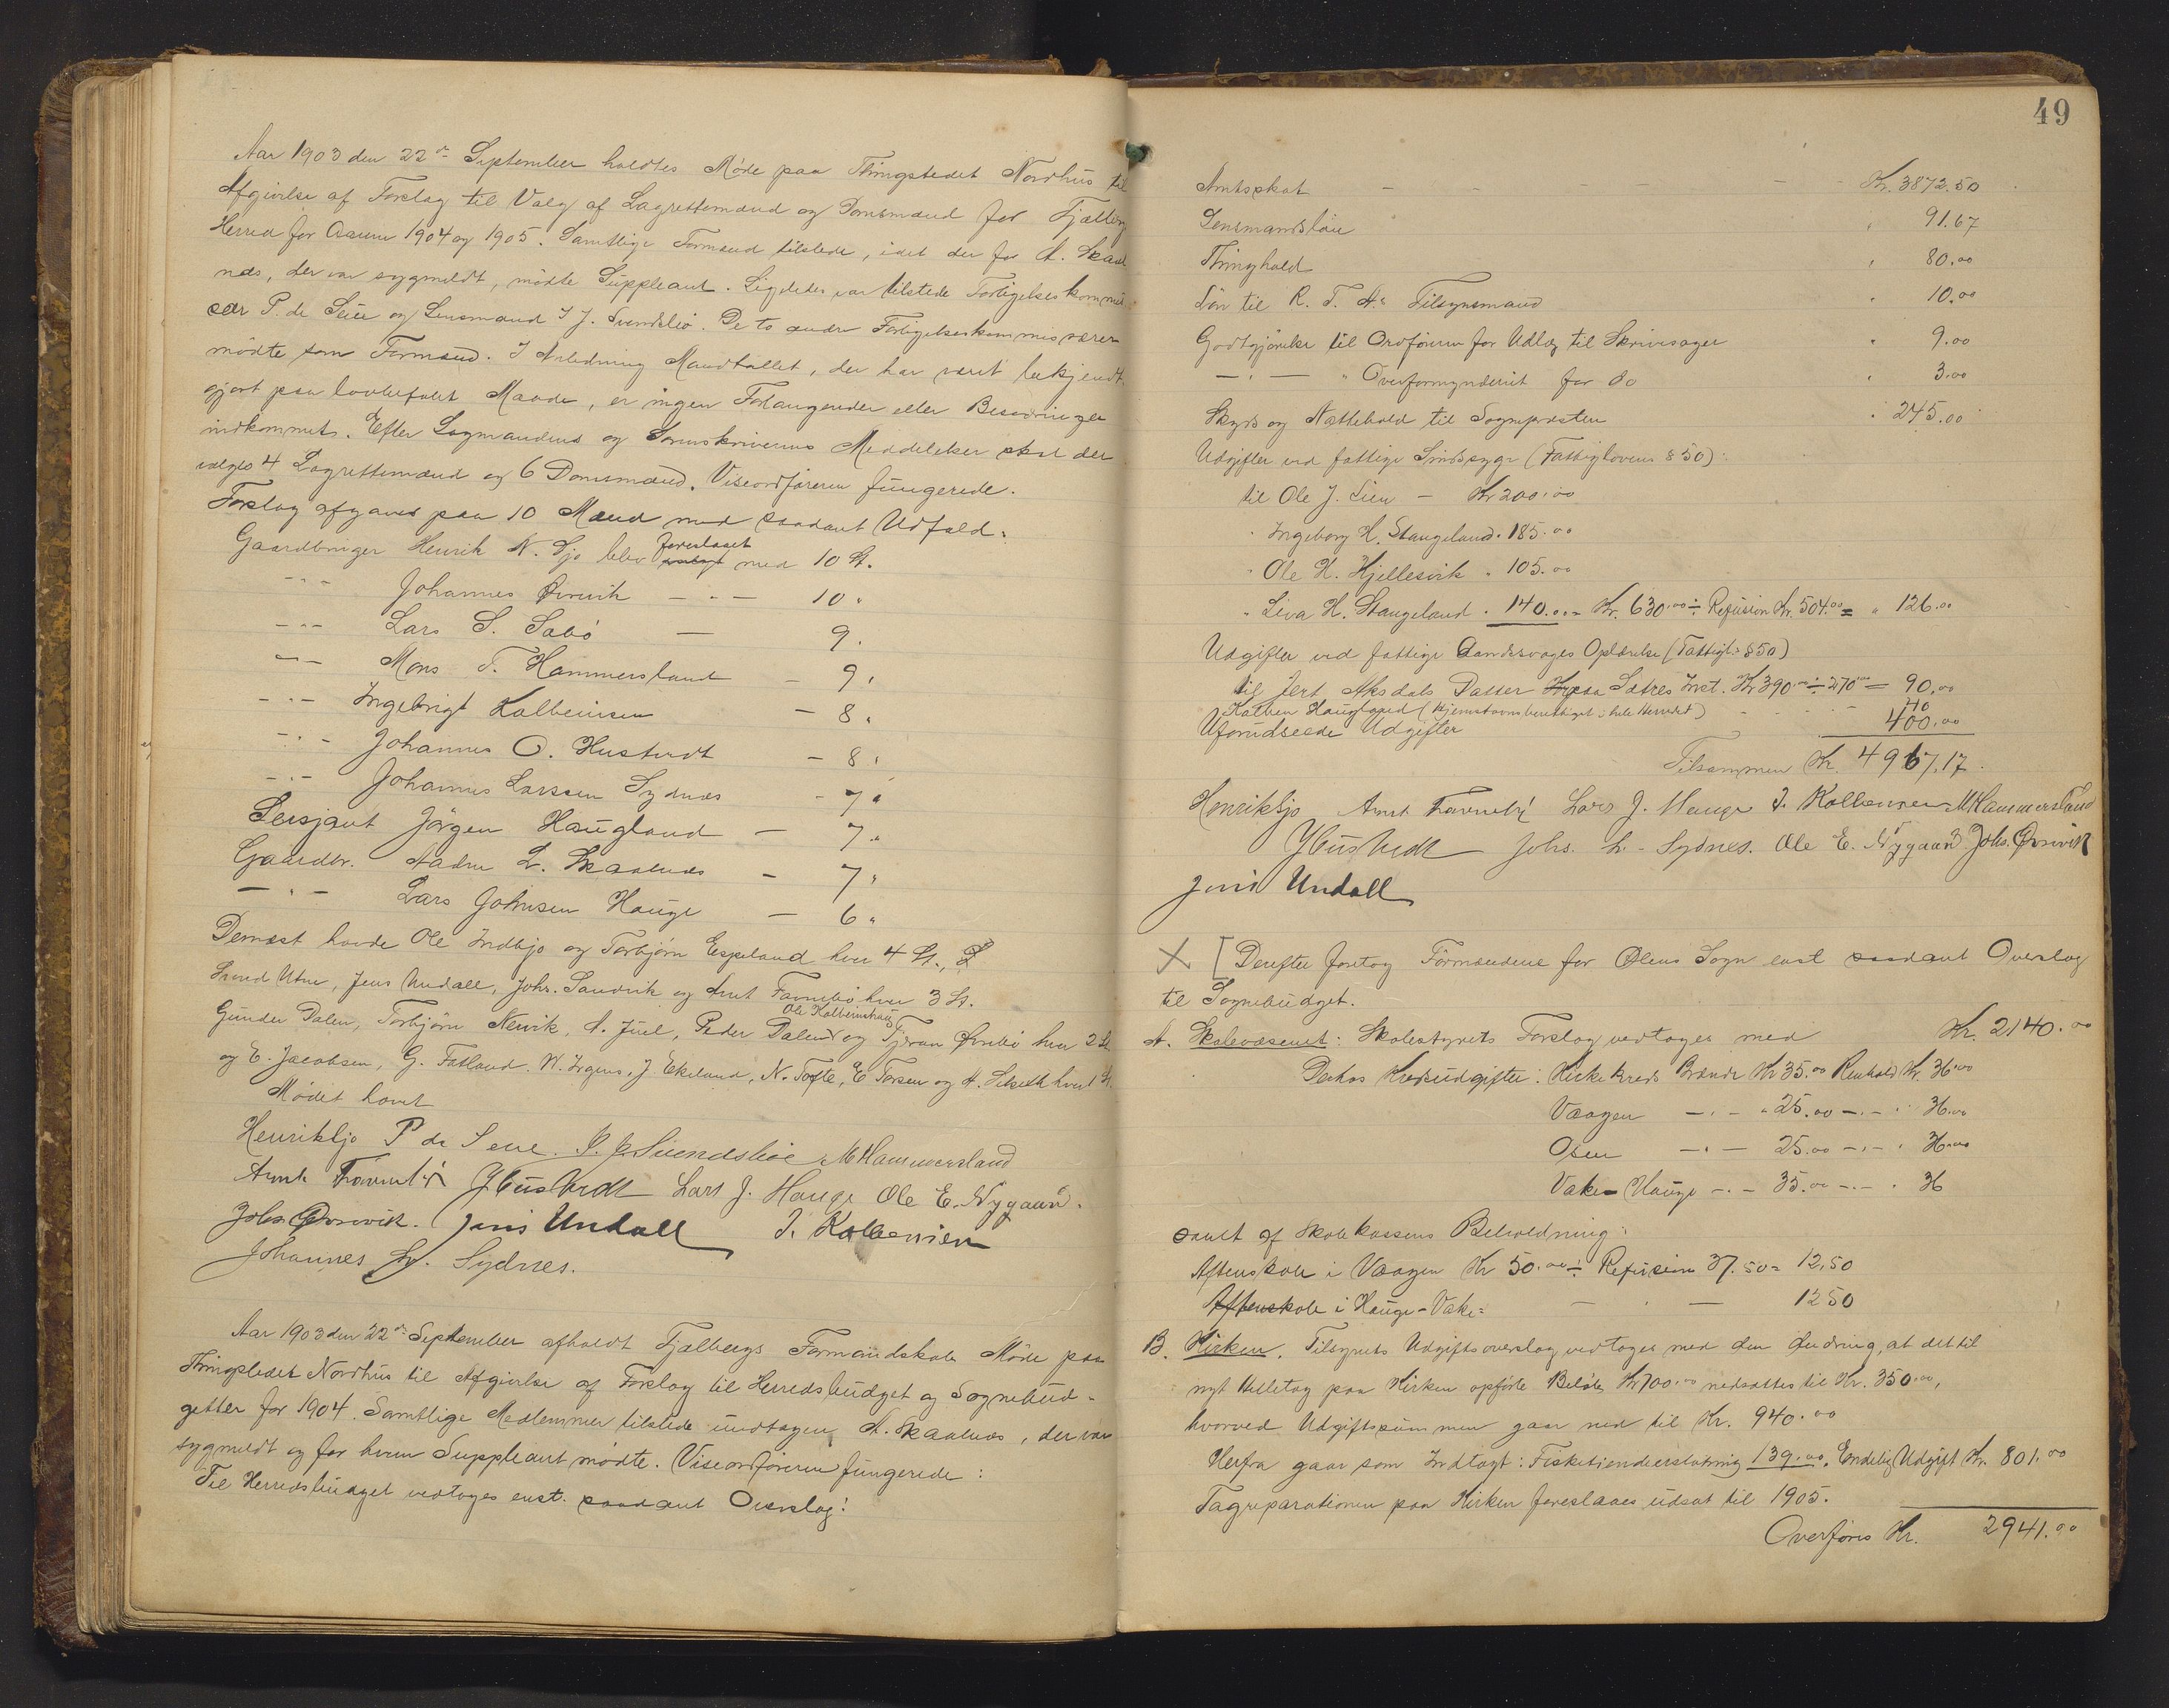 Aar 1903 den 22de September holdtes Møde paa Thingstedet Nordhus til
Afgivelse af Forslag til Valg af Lagrettemænd og Domsmænd for Fjælberg
Herred for Aarene 1904 og 1905. Samtlige Formænd tilstede, idet der for A. Skaal
næs, der var sygmeldt, mødte Suppleant. Ligeledes var tilstede Forligelseskommis
sær P. de Seue og Lensmand I. J. Svendsbø. De to andre Forligelseskommissærer
mødte som Formænd. I Anledning Mandtallet, der har været bekjendt
gjort paa lovbefalet Maade, er ingen Forlangender eller Besværinger
indkommet. Efter Lagmandens og Sorenskriverens Meddelelser skal der
vælges 4 Lagrettemænd og 6 Domsmænd. Viseordføreren fungerede.
Forslag afgaves paa 10 Mænd med saadant Udfald:
Gaardbruger Henrik N. Ljo blev foreslaaet valgt med 10 St.
-"- Johannes Ørsvik -"- 10 "
-"- Lars S. Sabø - 9 "
-"- Mons T. Hammersland - 9 "
-"- Ingebrigt Kolbeinsen - 8 "
-"- Johannes O. Hustvedt - 8 "
-"- Johannes Larssen Sydnæs - 7 "
Sersjant Jørgen Haugland - 7 "
Gaardbr. Aadne L. Skaalnæs - 7 "
-"- Lars Johnsen Hauge - 6 "
Dernæst havde Ole Indbjo og Torbjørn Espeland hver 4 St., L
Svend Utne, Jens Undall, Johs. Sandvik og Arnt Favnebø hver 3 St.
Ole Kolbeinshaug
Gunder Dalen, Torbjørn Nervik, A. Juel, Peder Dalen og Tjeran Ørebø hver 2 St.
og E. Jacobsen, G. Fatland, W. Irgens, J Ekeland, N. Tofte, E Torsen og A. hver 1 St.
Mødet hævet
Henrik Ljo P de Seue. I. J. Svendsbøe M Hammersland
Arnt Favnebø J Hustvedt Lars J. Hauge Ole E. Nygaard.
Johs Ørsvik. Jens Undall I. Kolbensen
Johannes L. Sydnes.
Aar 1903 den 22de September afholdt Fjælbergs Formandskab Møde paa
Thingstedet Nordhus til Afgivelse af Forslag til Herredsbudget og Sognebud-
getter for 1904. Samtlige Medlemmer tilstede undtagen A. Skaalnæs, der var
sygmeldt og for hvem Suppleant mødte. Viseordføreren fungerede:
Til Herredsbudget vedtoges enst. saadant Overslag:
49
Amtsskat - - - - - - Kr. 3872.50
Lensmandsløn " 91.67
Thinghold " 80.00
Løn til R. T. A's Tilsynsmand " 10.00
Godtgjørelse til Ordføreren for Udlæg til Skrivesager " 9.00
-"- " Overformynderiet for do " 3.00
Skyds og Nattehold til Sognepresten " 245.00
Udgifter ved fattige Sindssyge (Fattiglovens § 50):
til Ole J. Lien - Kr 200.00
" Ingeborg H. Stangeland " 185.00
" Ole H. Kjellesvik " 105.00
" Siva H. Stangeland " 140.00 = Kr. 630.00 ÷ Refusion Kr. 504.00 = " 126.00
Udgifter ved fattige Aandssvages Oplærelse (Fattigl. § 50)
til Jert Aksdals Datter paa Sætres Inst. Kr 390.00 ÷ 270.00 = 90.00
Haugland (Hjemstavnsberettiget i hele Herredet) 40
Uforudseede Udgifter 400.00
Tilsammen Kr. 4967.17.
Henrik Ljo Arnt Favnebø Lars J. Hauge I. Kolbensen M Hammersland
J Hustvedt Johs. L. Sydnes. Ole E. Nygaard Johs. Ørsvik
Jens Undall
X [ Derefter foretog Formændene for Ølens Sogn enst saadant Overslag
til Sognebudget.
A. Skolevæsenet: Skolestyrets Forslag vedtoges med Kr. 2140.00
Derhos Kredsudgifter: Kirkekreds Brænde Kr 35.00 Renhold Kr. 36.00
Vaagen -"- " 25.00 -"- " 36.00
Osen -"- 25.00 -"- " 36.00
Vake-Hauge -"- 35.00 -"- " 36
samt af Skolekassens Beholdning:
Aftenskole i Vaagen Kr 50.00 ÷ Refusion 37.50 = 12.50
Aftenskole i Hauge-Vake= - " - 12 50
B. Kirken. Tilsynets Udgiftsoverslag vedtoges med den Ændring, at det til
nyt Helletag paa Kirken opførte Beløb Kr 700.00 nedsattes til Kr. 350.00,
hvorved Udgiftssummen gaar ned til Kr. 940.00
Herfra gaar som Indtægt: Fisketiendeerstatning 139.00. Endelig Udgift Kr. 801.00
Tagreparationen paa Kirken foreslaaes udsat til 1905.
Overføres Kr. 2941.00